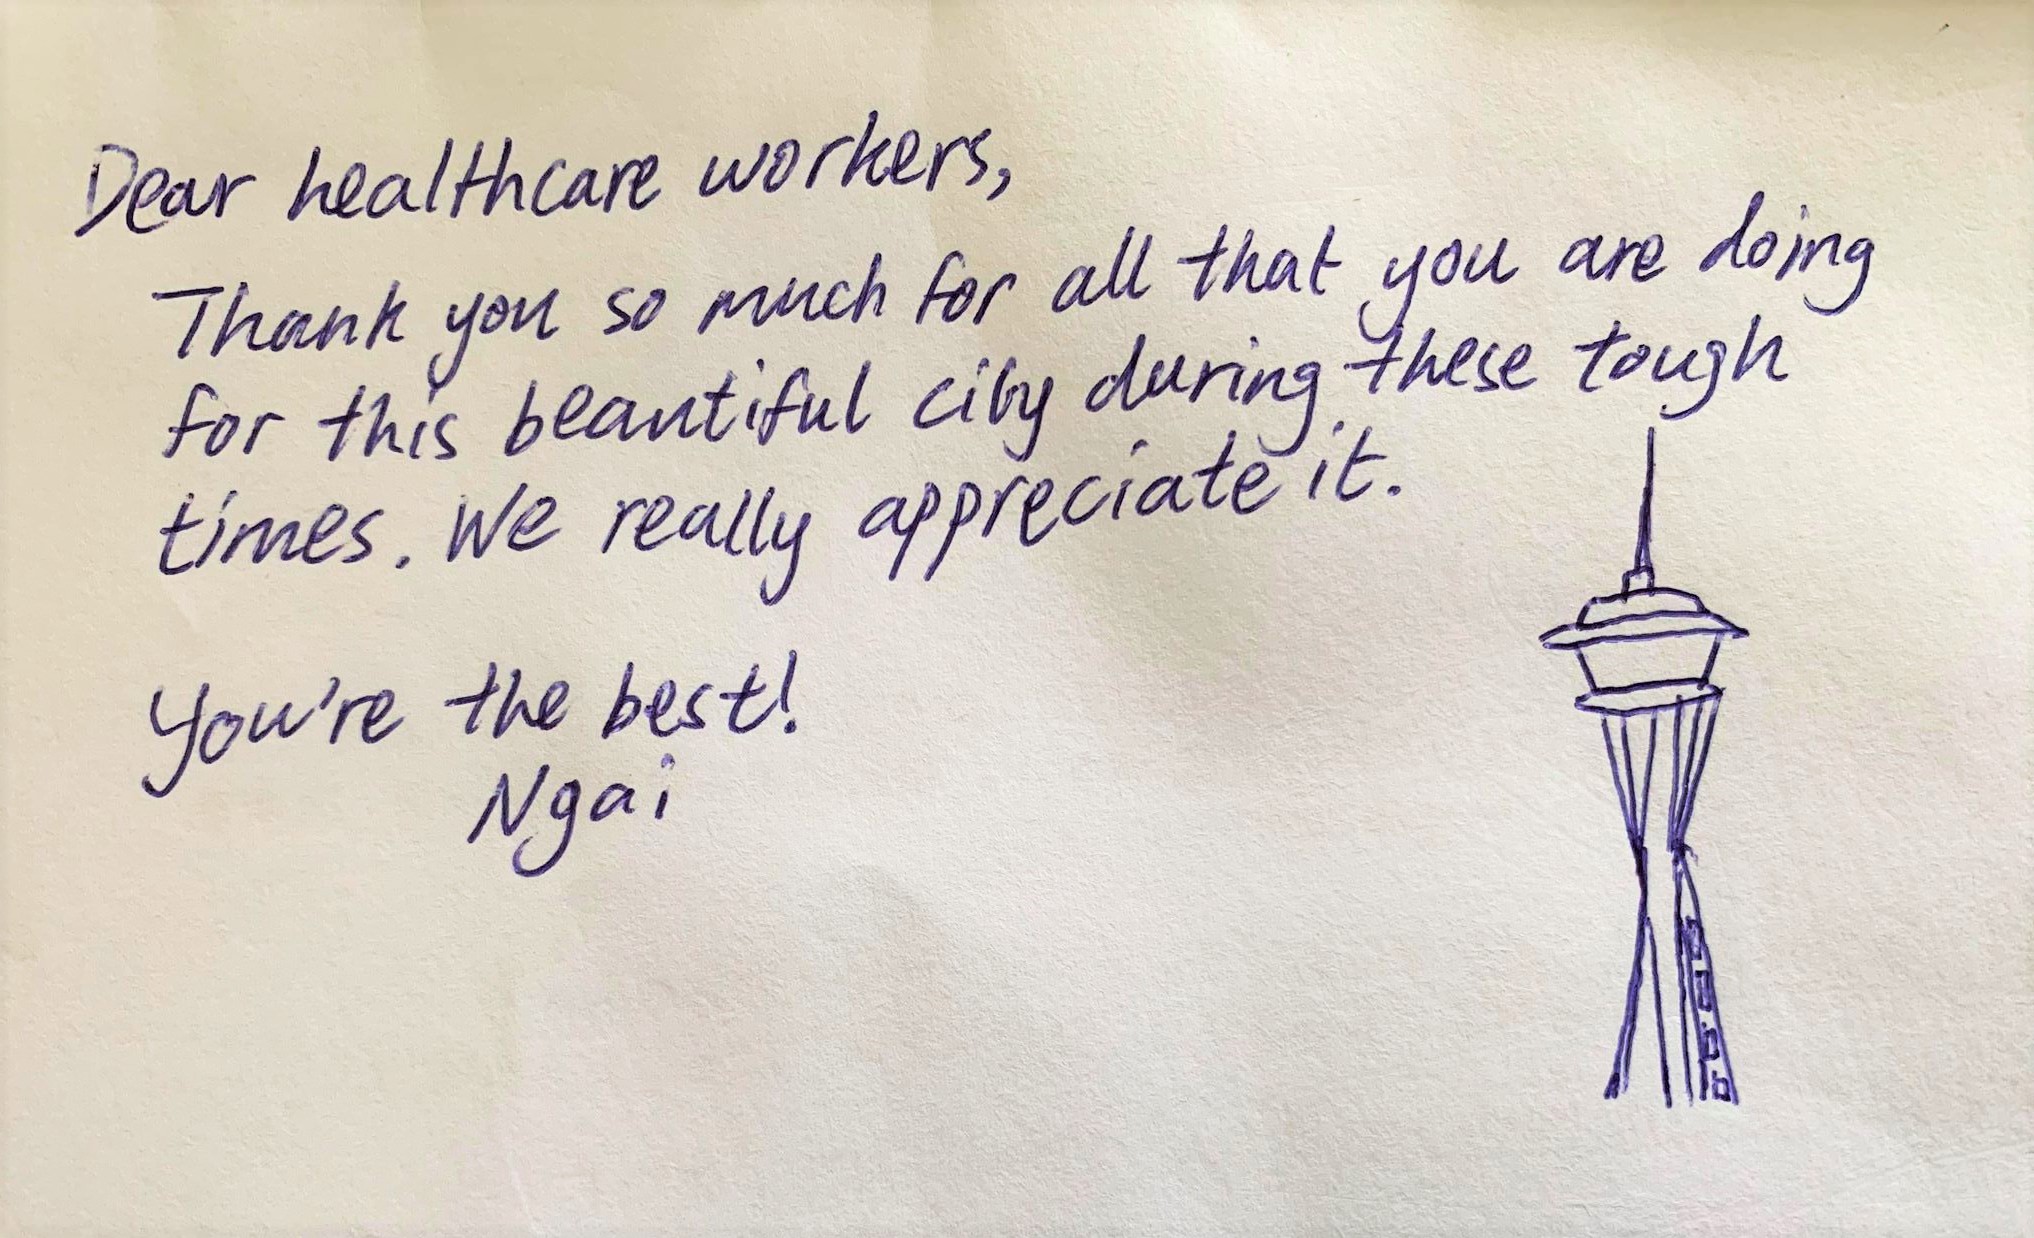 Dear healthcare workers,
Thank you so much for all that you are doing
for this beautiful city during these tough
times. We really appreciate it.
You're the best!
Ngai